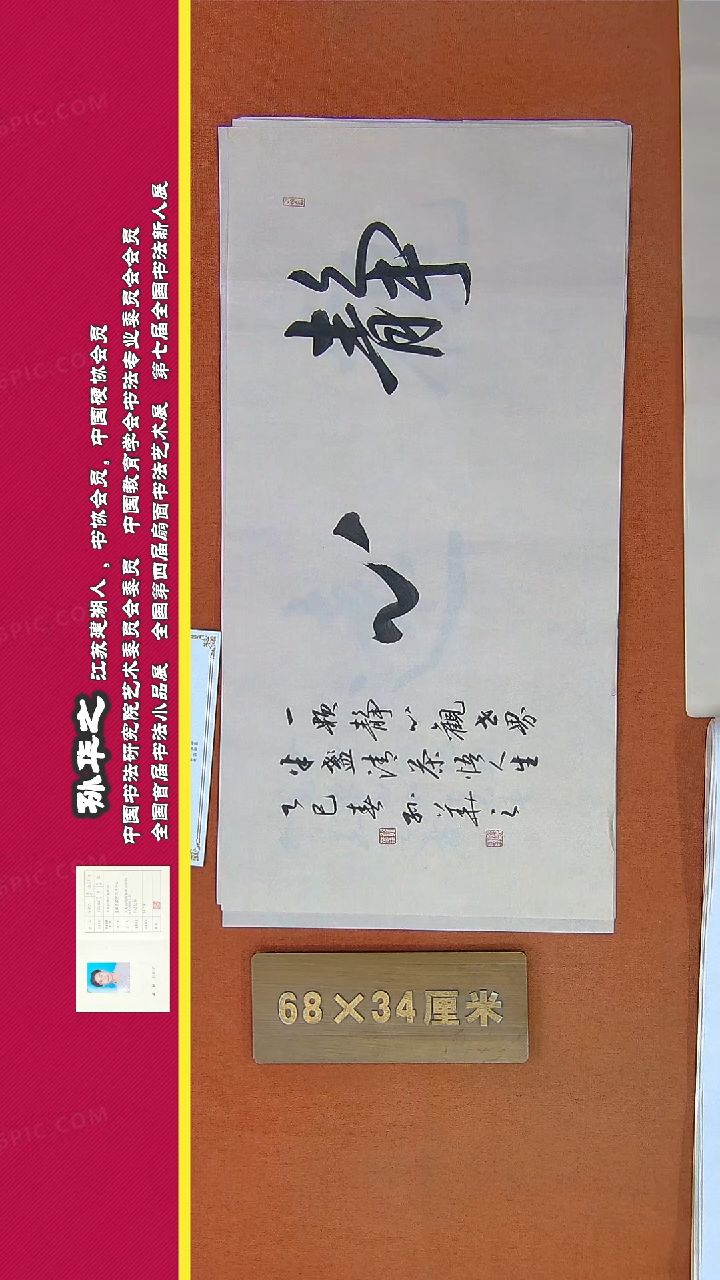 孙华之 江苏建湖人，书协会员，中国硬协会员
中国书法研究院艺术委员会委员 中国教育学会书法专业委员会会员
全国首届书法小品展 全国第四届扇面书法艺术展 第七届全国书法新人展
静心
一颗静心觀世界
半盏清茶悟人生
乙巳春孙華之
68×34厘米